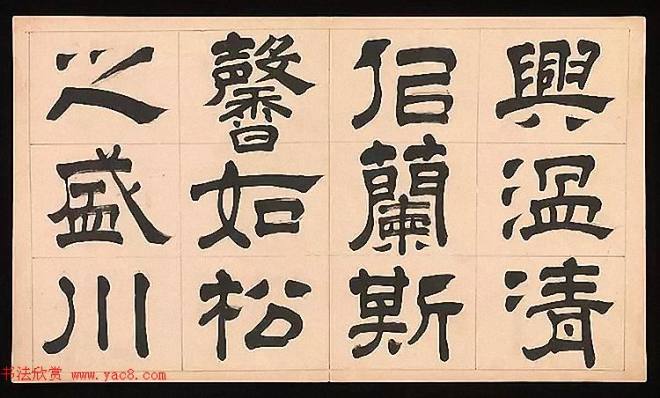 興温清
佀蘭斯
馨如松
之盛川
书法欣赏 www.yac8.com